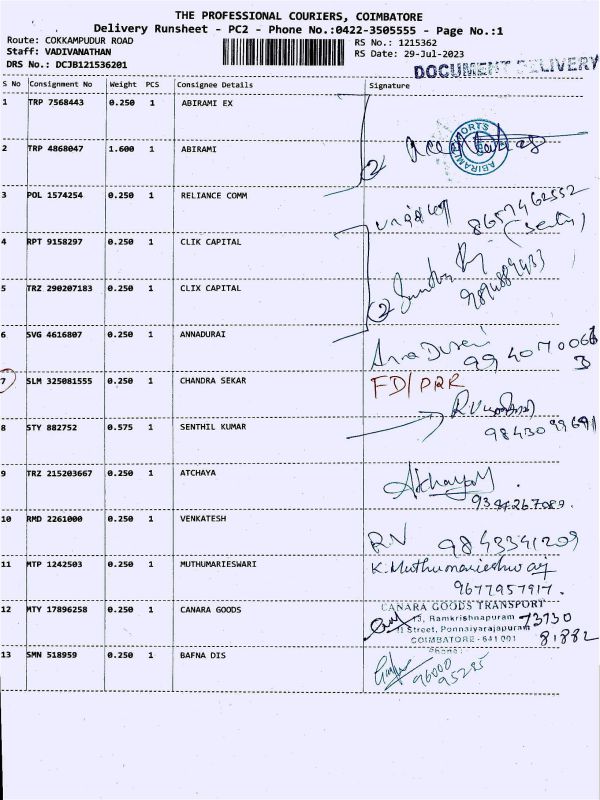 THE PROFESSIONAL COURIERS, COIMBATORE
Delivery Runsheet - PC2 - Phone No.:0422-3505555 - Page No.:1
Route: COKKAMPUDUR ROAD
Staff: VADIVANATHAN
DRS No.: DCJB121536201
RS No.: 1215362
RS Date: 29-Jul-2023
DOCUMENT DELIVERY
S No Consignment No Weight PCS Consignee Details Signature
1 TRP 7568443 0.250 1 ABIRAMI EX
2 TRP 4868047 1.600 1 ABIRAMI 2
3 POL 1574254 0.250 1 RELIANCE COMM 8657462552
4 RPT 9158297 0.250 1 CLIK CAPITAL
5 TRZ 290207183 0.250 1 CLIX CAPITAL 2
6 SVG 4616807 0.250 1 ANNADURAI Anna Durai
7 SLM 325081555 0.250 1 CHANDRA SEKAR FD/PRR
8 STY 882752 0.575 1 SENTHIL KUMAR
9843099691
9 TRZ 215203667 0.250 1 ATCHAYA Atchaya
10 RMD 2261000 0.250 1 VENKATESH RV 9843341209
11 MTP 1242503 0.250 1 MUTHUMARIESWARI K. Muthumarieshwari
9677957917.
12 MTY 17896258 0.250 1 CANARA GOODS CANARA GOODS TRANSPORT
13, Ramkrishnapuram 73730
11 Street, Ponnaiyarajapuram
COIMBATORE - 641 001 81882
Phone:
13 SMN 518959 0.250 1 BAFNA DIS 96000
95285